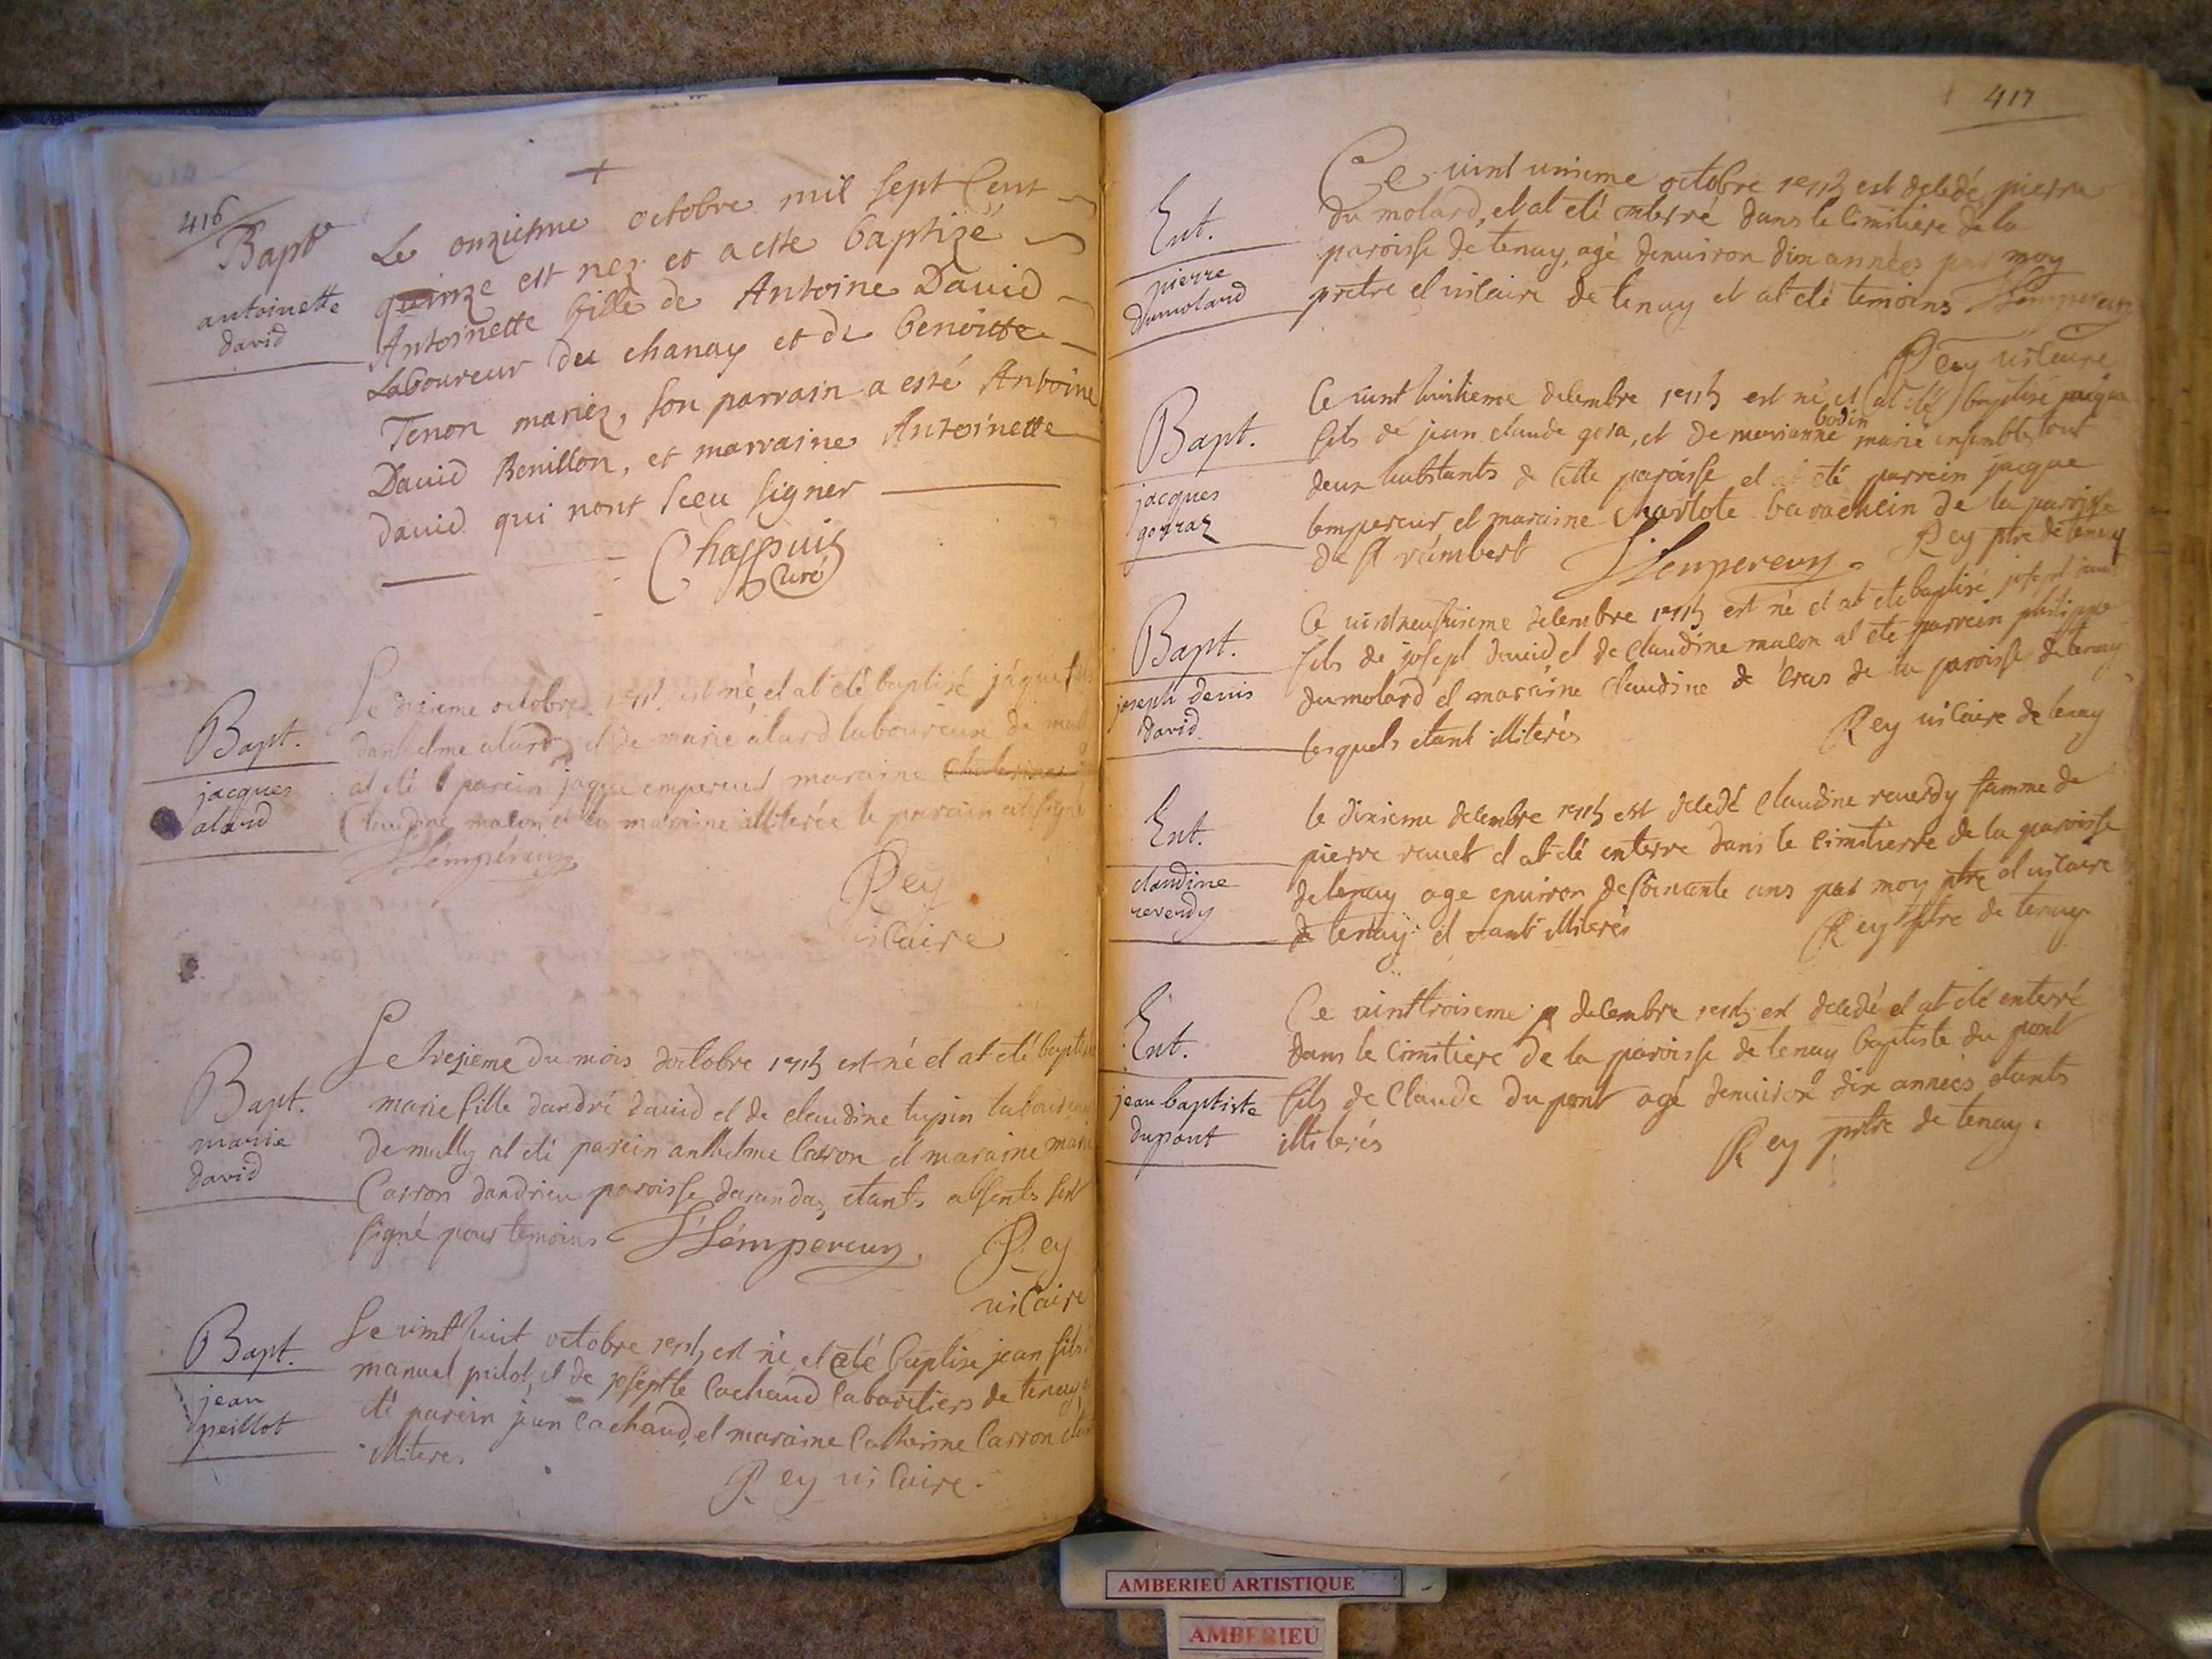 416
+
Bapt
antoinette
david
Le onziesme octobre mil sept Cent
quinze est nez et a esté baptizé
Antoinette fille de Antoine David
Laboureur du chanay et de benoitte
Tenon mariez, son parrain a esté Antoine
David Benillon, et marraine Antoinette
david qui nont sceu signer
Chappuis
Curé
Bapt.
jacques
alard
Le dixieme octobre 1715 est né, et at eté baptisé jaque fils
danthelme alard et de marie alard laboureux de
at eté parein jaque empereur maraine
Claudine malon et la maraine illiterée le parain at signé
J Lempereur
Rey
vicaire
Bapt.
marie
david
Le trezieme du mois doctobre 1715 est né et at eté baptisé
marie fille dandré david et de claudine tupin laboureux
de mully at eté parein anthelme Carron et maraine marie
Carron dandrieu paroisse daranda, etants absents
signé pour temoins J Lempereur. Rey
vicaire
Bapt.
jean
peillot
Le vint huit octobre 1715 est né, et eté baptisé jean fils
manuel pielot, et de josepte Cachaud Cabaretiers de tenay
eté parein jean Cachaud, et maraine Catherine Carron
illiteres
Rey vicaire.
417
Ent.
pierre
dumolard
Ce vint unieme octobre 1715 est decedé pierre
du molard, et at eté enterré dans le Cimitiere de la
paroisse de tenay, agé denviron dix années par moy
pretre et vicaire de tenay et at eté temoins J Lempereur
Rey vicaire
Bapt.
jacques
gorraz
Ce vint huitieme decembre 1715 est né et at eté baptisé jaque
fils de jean claude gora, et de marianne bodin marié ensemble tout
deux habitants de cette paroisse et at eté parrein jacque
lempereur et maraine charlote bavachein de la paroisse
de St rambert J Lempereur. Rey ptre de tenay
Bapt.
joseph denis
david
Ce vintneufvieme decembre 1715 est né et at eté baptisé joseph
fils de joseph david et de claudine malon at eté parrein philippe
dumolard et maraine claudine de Cras de la paroisse de tenay
lesquels etant illiterés Rey vicaire de tenay
Ent.
claudine
reverdy
le dixieme decembre 1715 est decedé Claudine reverdy famme de
pierre ravet et at eté enterre dans le Cimitierre de la paroisse
de tenay age environ de soixante ans par moy ptre et vicaire
de tenay et etant illiterés Rey ptre de tenay
Ent.
jean baptiste
dupont
Ce vinttroisieme decembre 1715 est decedé et at eté enterré
dans le Cimitiere de la paroisse de tenay baptiste du pont
fils de Claude du pont agé denviron dix années etants
illiterés Rey prtre de tenay.
AMBERIEU ARTISTIQUE
AMBERIEU